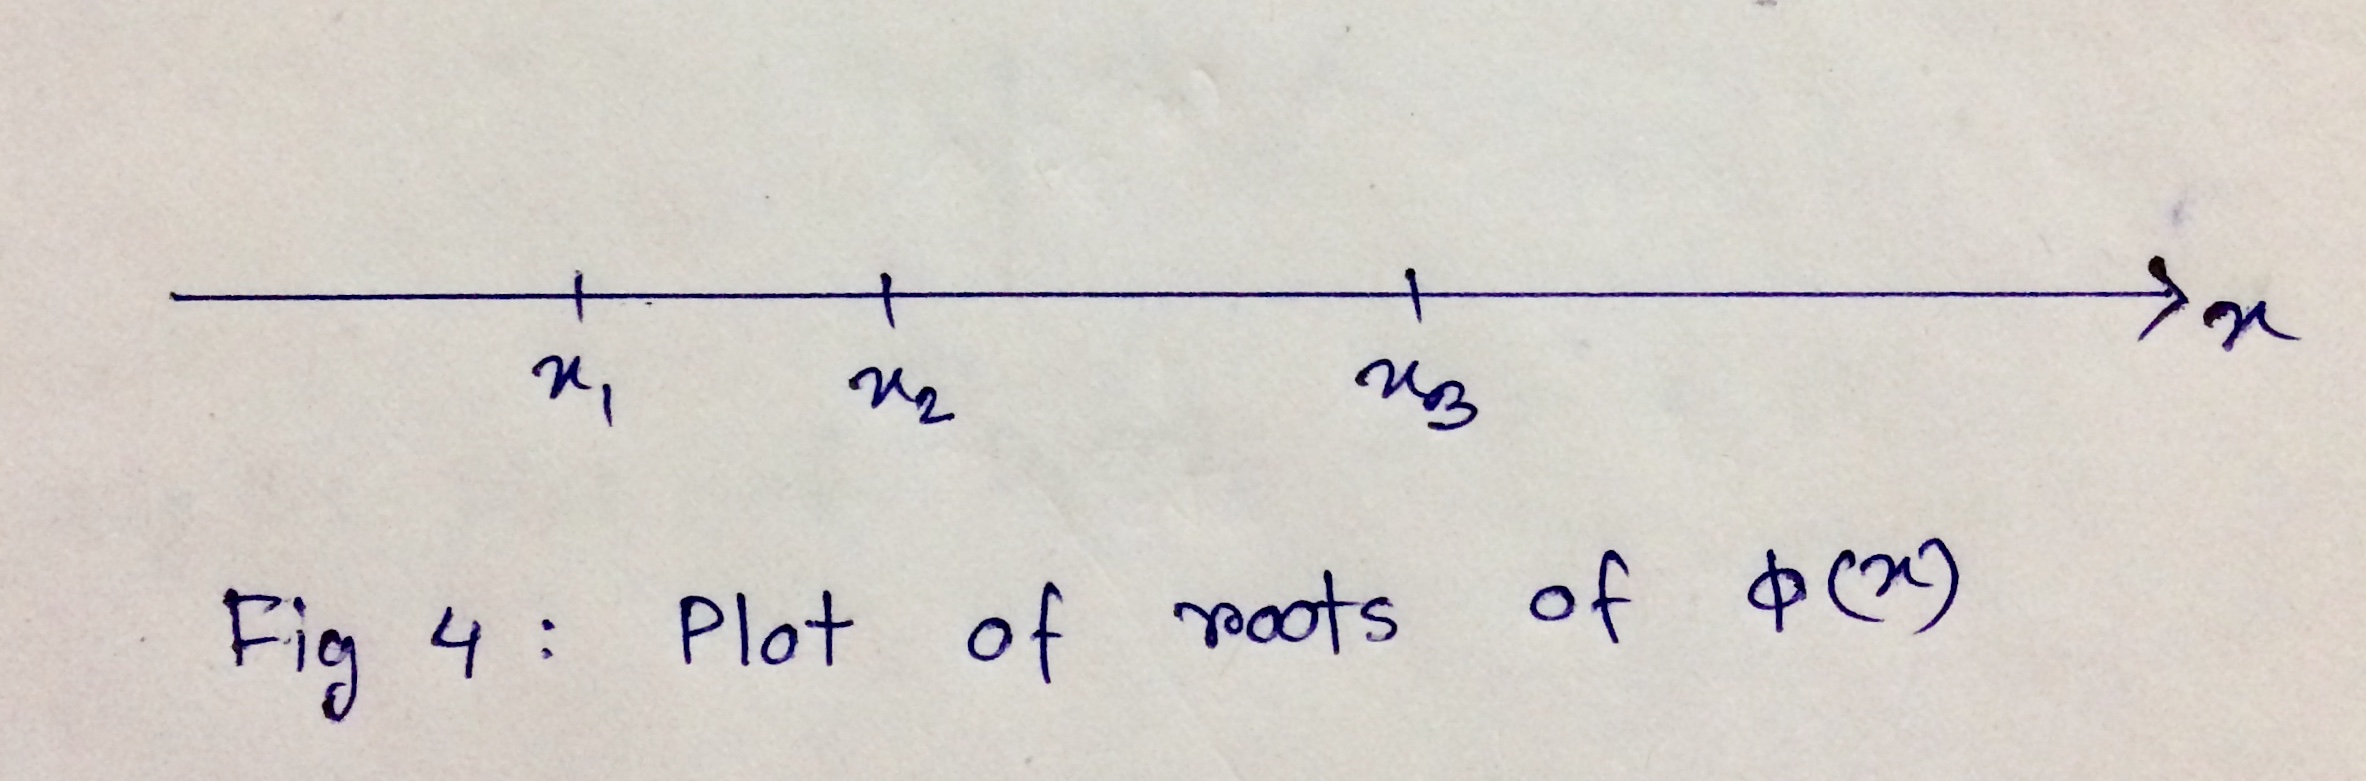 x
x₁ x₂ x₃
Fig 4 : Plot of roots of ϕ(x)